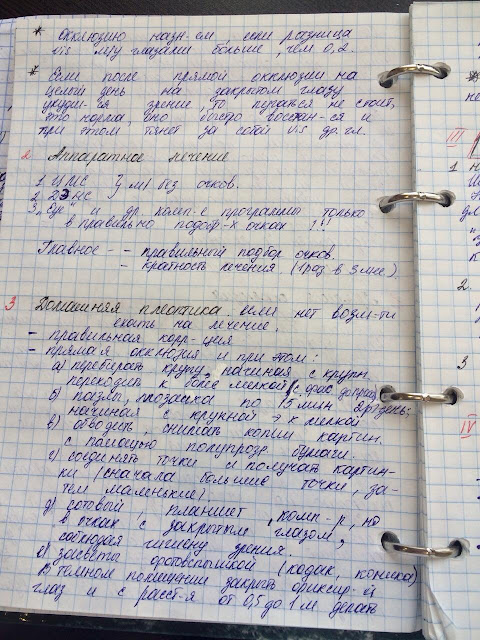 * Окклюзию назн-ем, если разница
vis м/у глазами больше, чем 0,2.
* Если после прямой окклюзии на
целый день на закрытом глазу
ухудш-ся зрение, то пугаться не стоит,
это норма, оно быстро восстан-ся и
при этом тянет за собой vis др. гл.
2 Аппаратное лечение
1. ЦМС } м/ без очков.
2. ДЭНС
3. и др. комп-е программы только
в правильно подобр-х очках !!!
Главное - - правильный подбор очков.
- кратность лечения (1 раз в 3 мес).
3 Домашняя плеоптика. если нет возм-ти
ехать на лечение.
- правильная корр-ция
- прямая окклюзия и при этом:
а) перебирать крупу, начиная с крупн.
переходить к более мелкой
б) пазлы, мозаика по 15 мин 2 р/день;
начиная с крупной → к мелкой
в) обводить, снимать копии картин.
с помощью полупрозр. бумаги.
г) соединять точки и получать картин-
ки (сначала большие точки, за-
тем маленькие).
д) сотовый, планшет, комп-р, но
в очках с закрытым глазом,
соблюдая гигиену зрения.
е) засветы фотовспышкой (кодак, коника)
В темном помещении закрыть фиксир-й
глаз и с расст-я от 0,5 до 1 м делать
III
1
2.
3
IV